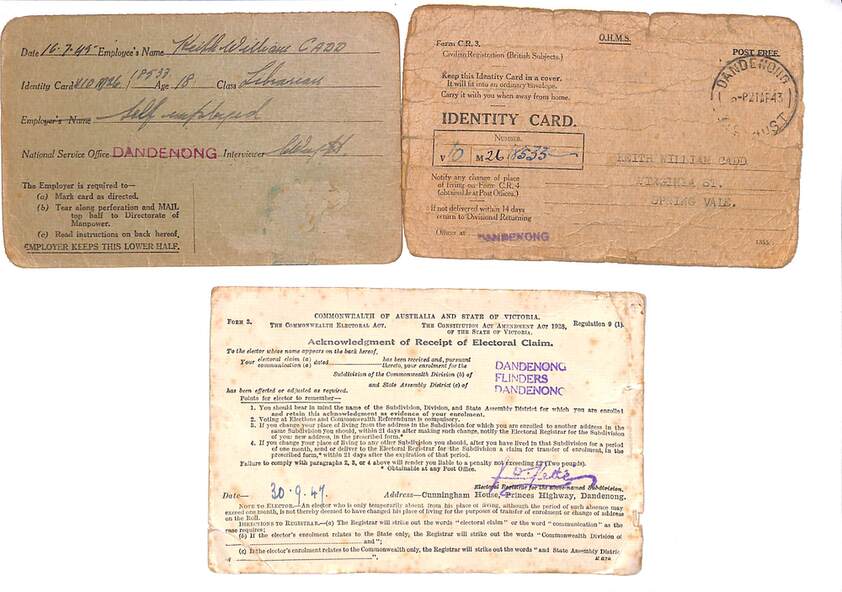 Date 16.7.45 Employee's Name Keith William CADD
Identity Card V10 M26 18533 Age 18 Class Librarian
Employer's Name Self employed
National Service Office DANDENONG Interviewer
The Employer is required to—
(a) Mark card as directed.
(b) Tear along perforation and MAIL
top half to Directorate of
Manpower.
(c) Read instructions on back hereof.
EMPLOYER KEEPS THIS LOWER HALF.
Form C.R. 3.
O.H.M.S.
Civilian Registration (British Subjects.)
POST FREE.
Keep this Identity Card in a cover.
It will fit into an ordinary envelope.
Carry it with you when away from home.
DANDENONG
IDENTITY CARD.
NUMBER.
V 10 M 26 18533
Notify any change of place
of living on Form C.R. 4
(obtainable at Post Offices.)
If not delivered within 14 days
return to Divisional Returning
Officer at DANDENONG
KEITH WILLIAM CADD
VIRGINIA ST.
SPRING VALE.
COMMONWEALTH OF AUSTRALIA AND STATE OF VICTORIA.
FORM 3. THE COMMONWEALTH ELECTORAL ACT. THE CONSTITUTION ACT AMENDMENT ACT 1928, Regulation 9 (1).
OF THE STATE OF VICTORIA.
Acknowledgment of Receipt of Electoral Claim.
To the elector whose name appears on the back hereof,
Your electoral claim (a) dated has been received and, pursuant
communication (a) thereto, your enrolment for the
Subdivision of the Commonwealth Division (b) of
and State Assembly District (c) of
DANDENONG
FLINDERS
DANDENONG
has been effected or adjusted as required.
Points for elector to remember—
1. You should bear in mind the name of the Subdivision, Division, and State Assembly District for which you are enrolled
and retain this acknowledgment as evidence of your enrolment.
2. Voting at Elections and Commonwealth Referendums is compulsory.
3. If you change your place of living from the address in the Subdivision for which you are enrolled to another address in the
same Subdivision you should, within 21 days after making such change, notify the Electoral Registrar for the Subdivision
of your new address, in the prescribed form.*
4. If you change your place of living to any other Subdivision you should, after you have lived in that Subdivision for a period
of one month, send or deliver to the Electoral Registrar for the Subdivision a claim for transfer of enrolment, in the
prescribed form,* within 21 days after the expiration of that period.
Failure to comply with paragraphs 2, 3, or 4 above will render you liable to a penalty not exceeding £2 (Two pounds).
* Obtainable at any Post Office.
Electoral Registrar for the above-named Subdivision.
Date— 30.9.47. Address—Cunningham House, Princes Highway, Dandenong.
NOTE TO ELECTOR.—An elector who is only temporarily absent from his place of living, although the period of such absence may
exceed one month, is not thereby deemed to have changed his place of living for the purposes of transfer of enrolment or change of address
on the Roll.
DIRECTIONS TO REGISTRAR.—(a) The Registrar will strike out the words "electoral claim" or the word "communication" as the
case requires;
(b) If the elector's enrolment relates to the State only, the Registrar will strike out the words "Commonwealth Division of
and";
(c) If the elector's enrolment relates to the Commonwealth only, the Registrar will strike out the words "and State Assembly District
of ".